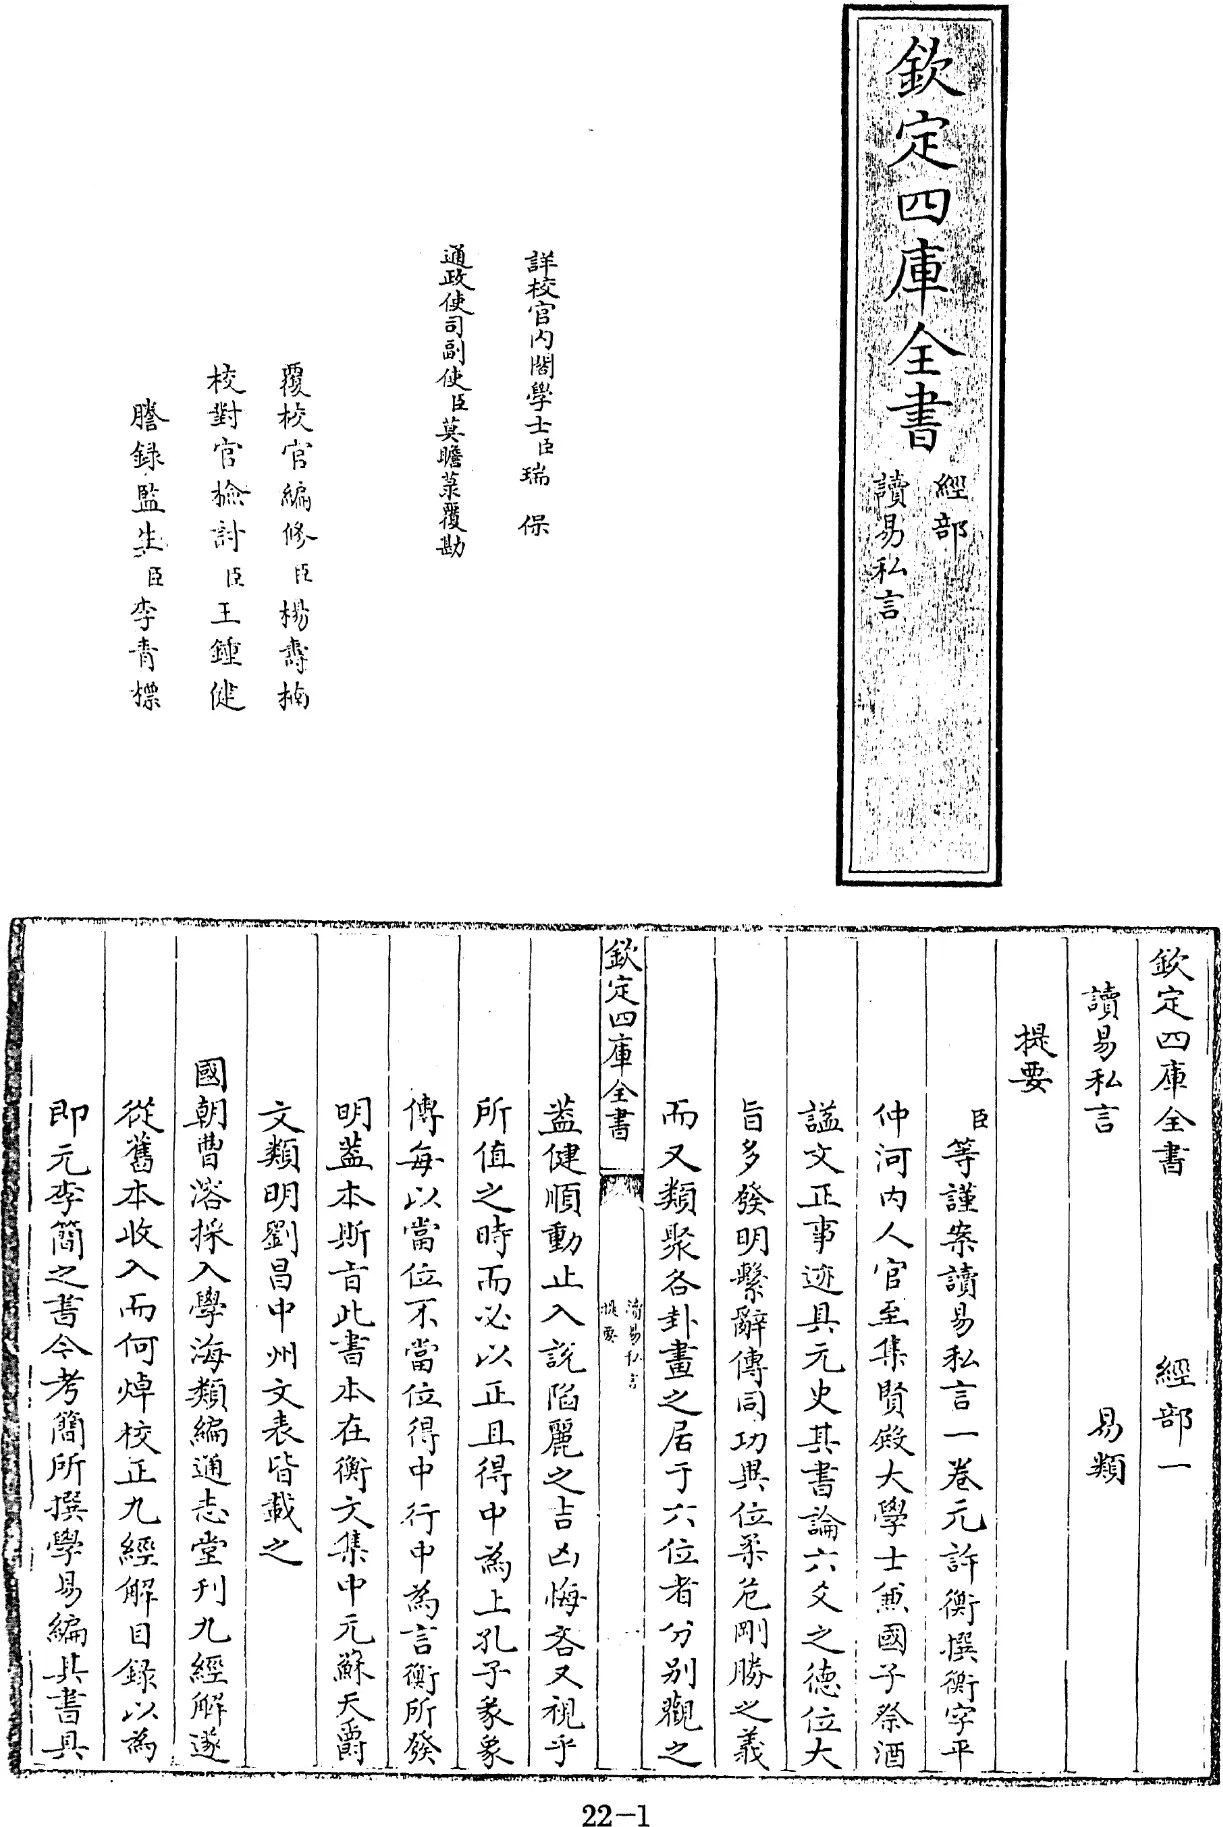 欽定四庫全書
經部
讀易私言
詳校官內閣學士臣瑞保
通政使司副使臣莫瞻菉覆勘
覆校官編修臣楊壽楠
校對官檢討臣王鍾健
謄錄監生臣李青標
欽定四庫全書 經部一
讀易私言 易類
提要
臣等謹案讀易私言一卷元許衡撰衡字平
仲河内人官至集賢殿大學士兼國子祭酒
諡文正事迹具元史其書論六爻之德位大
旨多發明繫辭傳同功異位柔危剛勝之義
而又類聚各卦畫之居于六位者分別觀之
欽定四庫全書
讀易私言
提要
蓋健順動止入說陷麗之吉凶悔吝又視乎
所值之時而必以正且得中為上孔子彖象
傳每以當位不當位得中行中為言衡所發
明蓋本斯旨此書本在衡文集中元蘇天爵
文類明劉昌中州文表皆載之
國朝曹溶採入學海類編通志堂刊九經解遂
從舊本收入而何焯校正九經解目録以為
即元李簡之書今考簡所撰學易編其書具
22-1